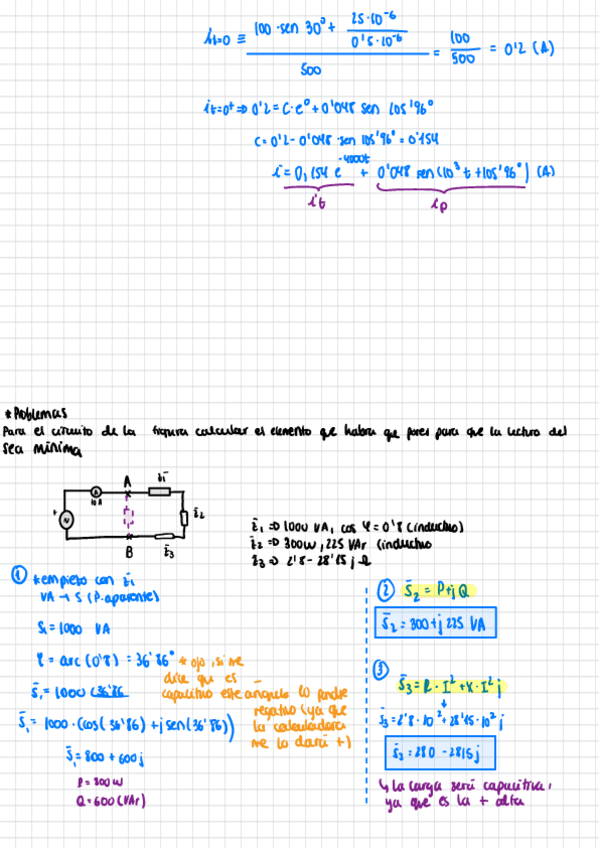 i t=0 ≡ (100 · sen 30° + 25·10⁻⁶ / 0'5·10⁻⁶) / 500 = 100 / 500 = 0'2 (A)
i t=0⁺ ⇒ 0'2 = C·e⁰ + 0'048 sen 105'96°
C = 0'2 - 0'048 · sen 105'96° = 0'154
i = 0,154 e^-4000t + 0'048 sen (10³ t + 105'96°) (A)
it ip
*Problemas
Para el circuito de la figura calcular el elemento que habra que poner para que la lectura del
sea mínima
A z̄1
A
10A
+ z̄2
B z̄3
z̄1 ⇒ 1000 VA, cos φ = 0'8 (inductivo)
z̄2 ⇒ 300W, 225 VAr (inductivo
z̄3 ⇒ 2'8 - 28'15 j Ω
① *empiezo con z̄1
VA → S (P. aparente)
S1 = 1000 VA
φ = arc (0'8) = 36'86° * ojo, si me
dice que es
capacitivo este angulo lo pondre
negativo (ya que
la calculadora
me lo dará +)
S̄1 = 1000 ∠36'86
S̄1 = 1000 · (cos(36'86) + j sen(36'86))
S̄1 = 800 + 600j
P = 800W
Q = 600 (VAr)
② S̄2 = P + j Q
S̄2 = 300 + j 225 VA
③ S̄3 = R · I² + X · I² j
S̄3 = 2'8 · 10² + 28'15 · 10² j
S̄3 = 280 - 2815 j
↳ la carga será capacitiva,
ya que es la + alta